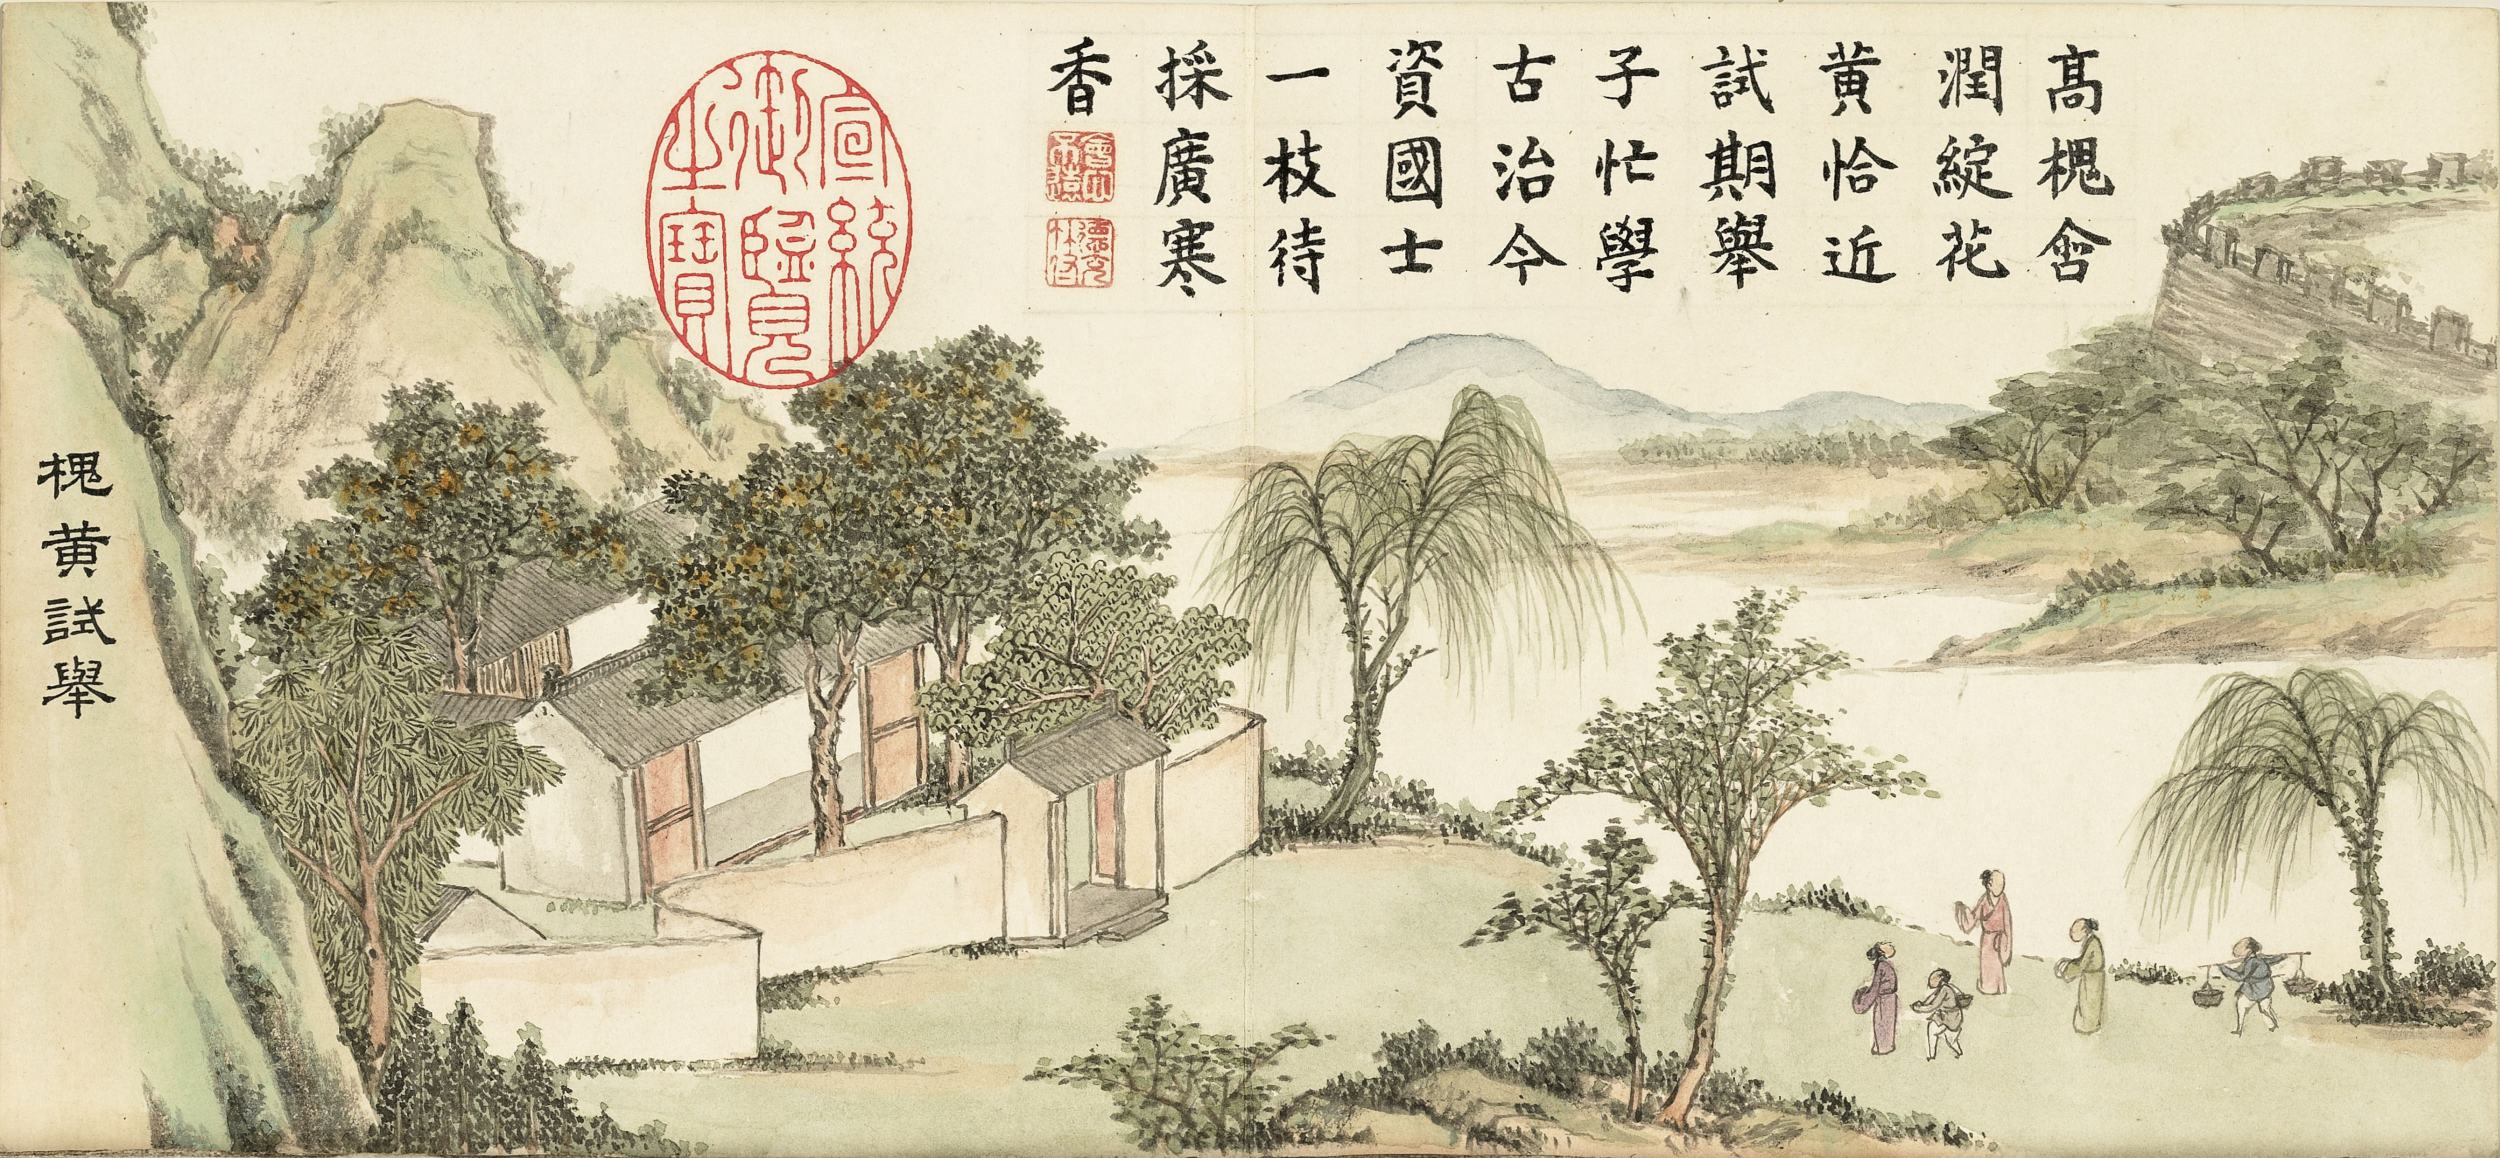 高槐會
潤綻花
黄恰近
試期舉
子忙學
古治今
資國士
一枝待
採廣寒
香
宣統
御覽
之寶
槐黄試舉